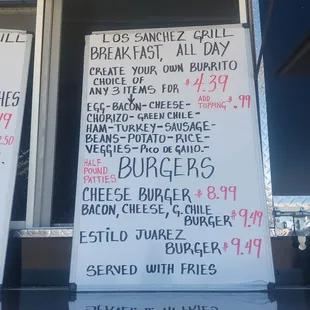 LOS SANCHEZ GRILL
BREAKFAST, ALL DAY
CREATE YOUR OWN BURRITO
CHOICE OF
ANY 3 ITEMS FOR $4.39
ADD TOPPING $.99
EGG-BACON-CHEESE-
CHORIZO-GREEN CHILE-
HAM-TURKEY-SAUSAGE-
BEANS-POTATO-RICE-
VEGGIES-PICO DE GALLO.-
HALF
POUND
PATTIES
BURGERS
CHEESE BURGER $8.99
BACON, CHEESE, G. CHILE
BURGER $9.49
ESTILO JUAREZ
BURGER $9.49
SERVED WITH FRIES